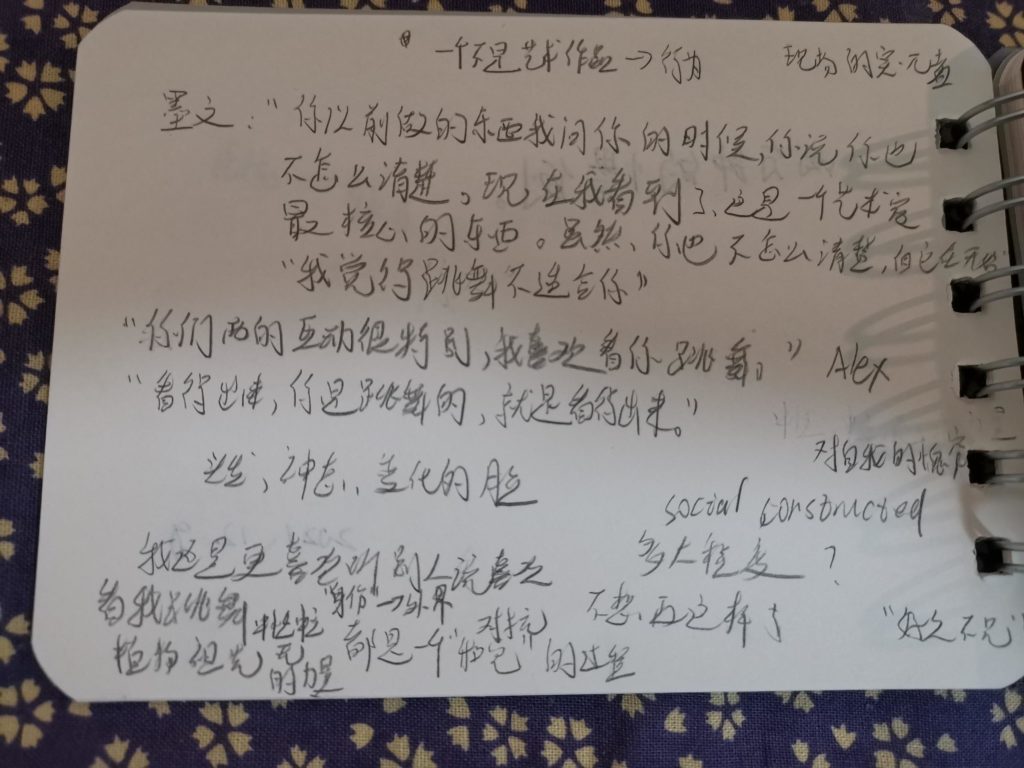 一个不是艺术作品→行为
现场的完元意
墨文："你以前做的东西我问你的时候,你说你也
不怎么清楚。现在我看到了,这是一个艺术家
最核心的东西。虽然,你也不怎么清楚,但它在
"我觉得跳舞不适合你"
"你们两的互动很特别,我喜欢看你跳舞。" Alex
"看得出来,你是跳舞的,就是看得出来。"
神态,变化的脸
对自我的
social constructed
多大程度?
我还是更喜欢听别人说喜欢
看我跳舞
"身份"→外界
对抗
不想再这样了
"好久不见"
植物祖先
的力量
都是一个"和它"的过程